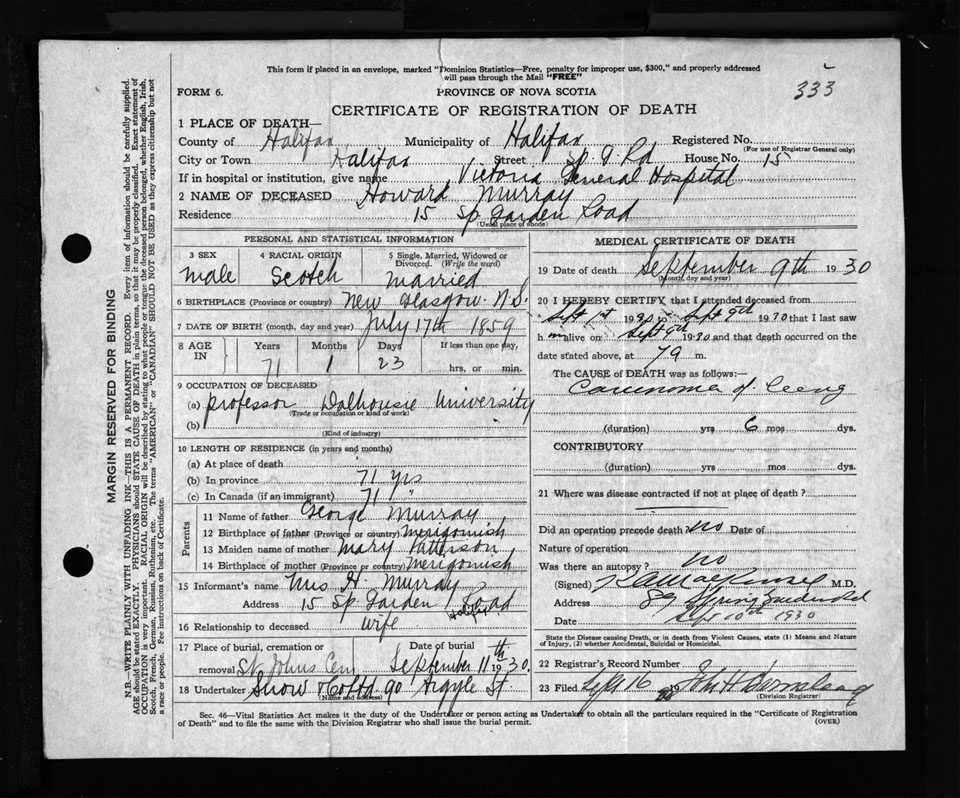 This form if placed in an envelope, marked "Dominion Statistics—Free, penalty for improper use, $300," and properly addressed
will pass through the Mail "FREE"
333
FORM 6.
PROVINCE OF NOVA SCOTIA
CERTIFICATE OF REGISTRATION OF DEATH
MARGIN RESERVED FOR BINDING
N.B.—WRITE PLAINLY WITH UNFADING INK—THIS IS A PERMANENT RECORD. Every item of information should be carefully supplied.
AGE should be stated EXACTLY. PHYSICIANS should STATE CAUSE OF DEATH in plain terms, so that it may be properly classified. Exact statement of
OCCUPATION is very important. RACIAL ORIGIN will be described by stating to what people or tongue the deceased person belonged, whether English, Irish,
Scotch, French, German, Russian, Ruthenian, etc. The terms "AMERICAN" or "CANADIAN" SHOULD NOT BE USED as they express citizenship but not
a race or people. Fee instructions on back of Certificate.
1 PLACE OF DEATH—
County of Halifax Municipality of Halifax Registered No.
(For use of Registrar General only)
City or Town Halifax Street Sp. G Rd House No. 15
If in hospital or institution, give name Victoria General Hospital
2 NAME OF DECEASED Howard Murray
Residence 15 Sp Garden Road
(Usual place of abode)
PERSONAL AND STATISTICAL INFORMATION
3 SEX 4 RACIAL ORIGIN 5 Single, Married, Widowed or
Divorced. (Write the word)
male Scotch married
6 BIRTHPLACE (Province or country) New Glasgow. N.S.
7 DATE OF BIRTH (month, day and year) July 17th 1859
8 AGE IN Years Months Days If less than one day,
71 1 23 hrs. or min.
9 OCCUPATION OF DECEASED
(a) professor Dalhousie University
(Trade or occupation or kind of work)
(b)
(Kind of industry)
10 LENGTH OF RESIDENCE (in years and months)
(a) At place of death
(b) In province 71 yrs
(c) In Canada (if an immigrant) 71 "
Parents
11 Name of father George Murray
12 Birthplace of father (Province or country) Merigomish
13 Maiden name of mother Mary Patterson
14 Birthplace of mother (Province or country) Merigomish
15 Informant's name Mrs H. Murray
Address 15 Sp Garden Road
16 Relationship to deceased wife
17 Place of burial, cremation or Date of burial
removal St Johns Cem September 11th 1930.
18 Undertaker Snow & Co Ltd 90 Argyle St.
(Name and address)
MEDICAL CERTIFICATE OF DEATH
19 Date of death September 9th 1930
(Month, day and year)
20 I HEREBY CERTIFY that I attended deceased from
Sept 1st 1930 to Sept 9th 1930 that I last saw
h m alive on Sept 9th 1930 and that death occurred on the
date stated above, at 79 m.
The CAUSE of DEATH was as follows:—
Carcinoma of
(duration) yrs 6 mos dys.
CONTRIBUTORY
(duration) yrs mos dys.
21 Where was disease contracted if not at place of death?
Did an operation precede death? no Date of
Nature of operation
Was there an autopsy? no
(Signed) M.D.
Address 89 Spring Garden Rd
Date Sept 10th 1930
State the Disease causing Death, or in death from Violent Causes, state (1) Means and Nature
of Injury, (2) whether Accidental, Suicidal or Homicidal.
22 Registrar's Record Number
23 Filed Sept 16 1930 John H
(Division Registrar)
Sec. 46—Vital Statistics Act makes it the duty of the Undertaker or person acting as Undertaker to obtain all the particulars required in the "Certificate of Registration
of Death" and to file the same with the Division Registrar who shall issue the burial permit.
(OVER)